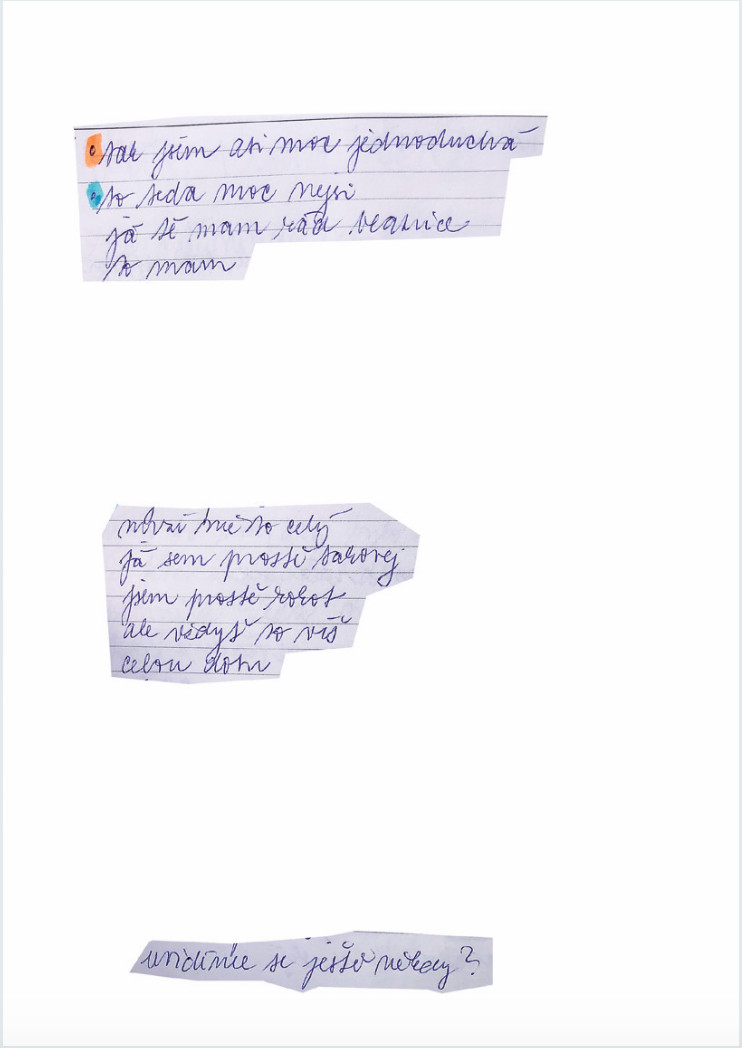 tak jsem asi moc jednoduchá
to teda moc nejsi
já tě mam rád beatrice
to mam
mrzí mě to celý
já sem prostě takovej
jsem prostě robot
ale vědyť to víš
celou dobu
uvidíme se ještě někdy?